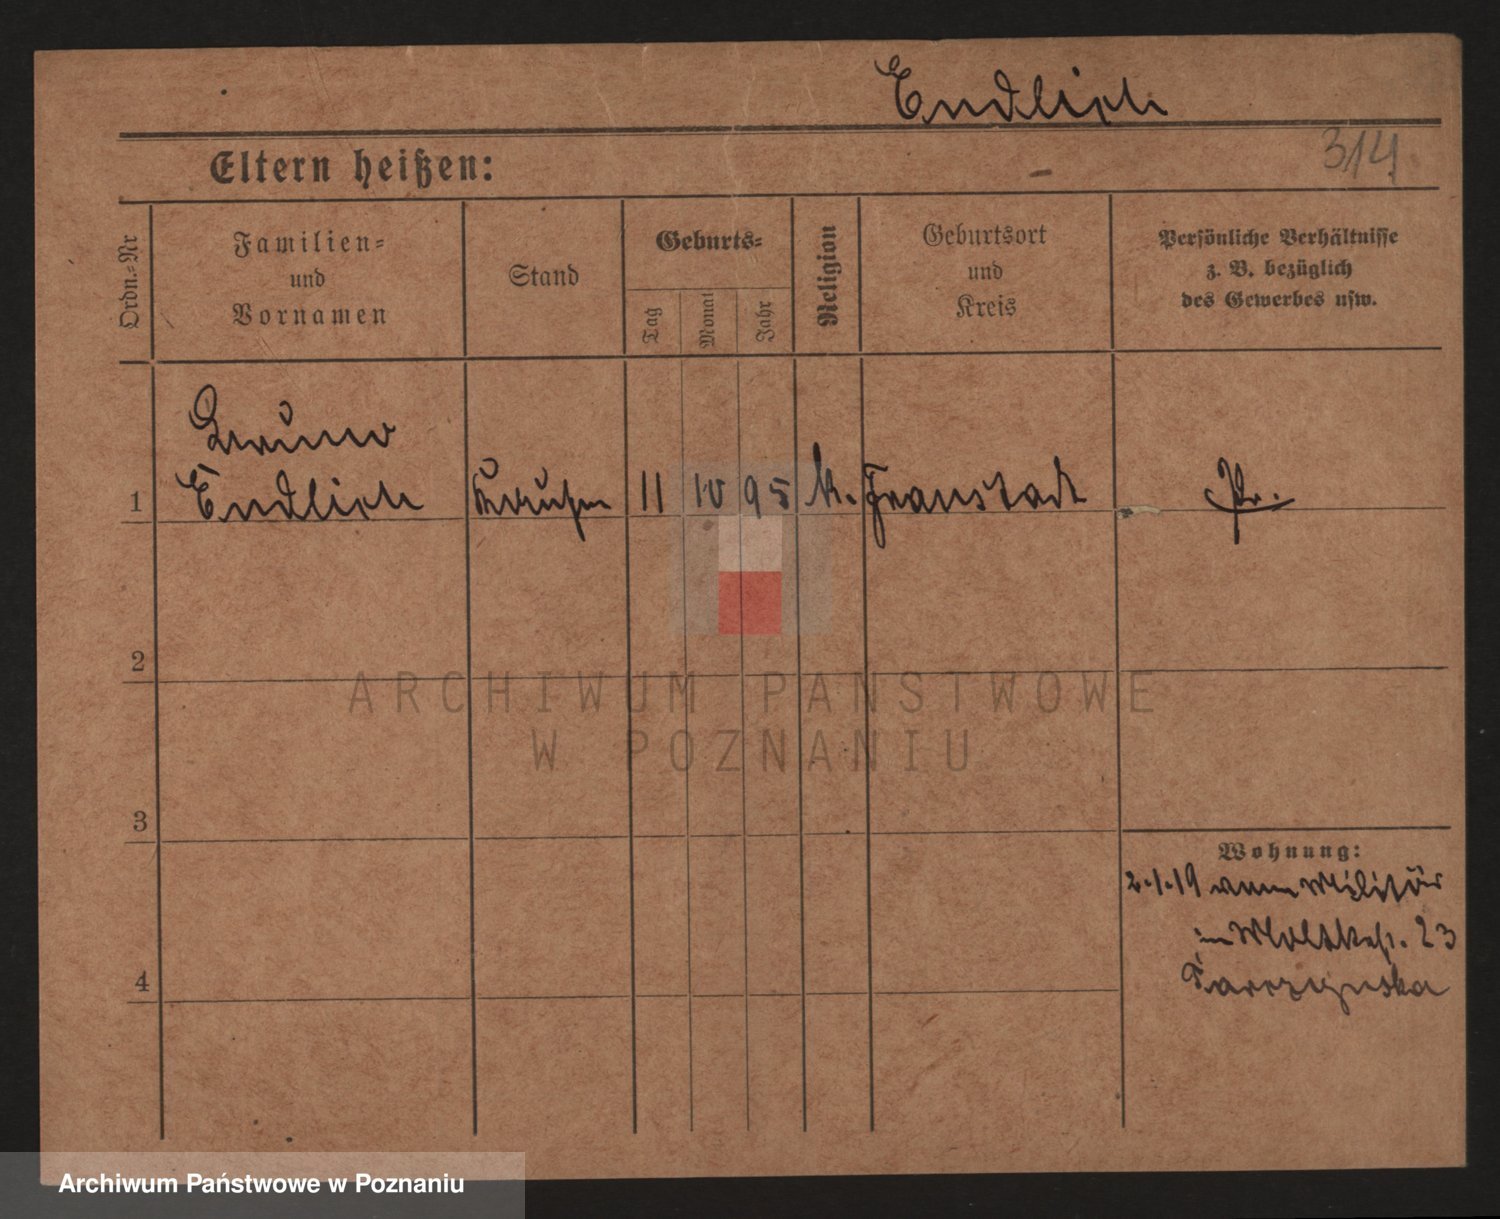 Endlich
Eltern heißen:
314
Ordn.=Nr
Familien=
und
Vornamen
Stand
Geburts=
Tag
Monat
Jahr
Religion
Geburtsort
und
Kreis
Persönliche Verhältnisse
z. B. bezüglich
des Gewerbes usw.
Bruno
1 Endlich 11 10 95 k. Fraustadt Pr.
2
3
4
Wohnung:
2.1.19 vom Militär
in Moltkestr. 23
ARCHIWUM PAŃSTWOWE
W POZNANIU
Archiwum Państwowe w Poznaniu